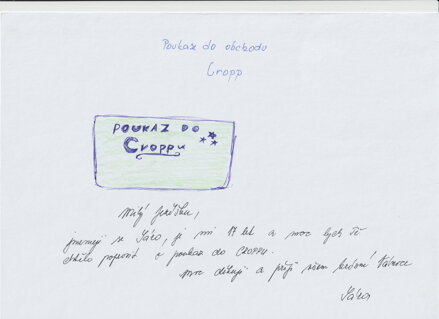 Poukaz do obchodu
Cropp
POUKAZ DO
Croppu
Milý Ježíšku,
jmenuji se Sára, je mi 17 let a moc bych Tě
chtěla poprosit o poukaz do CROPPU.
Moc děkuji a přeji všem krásné Vánoce
Sára